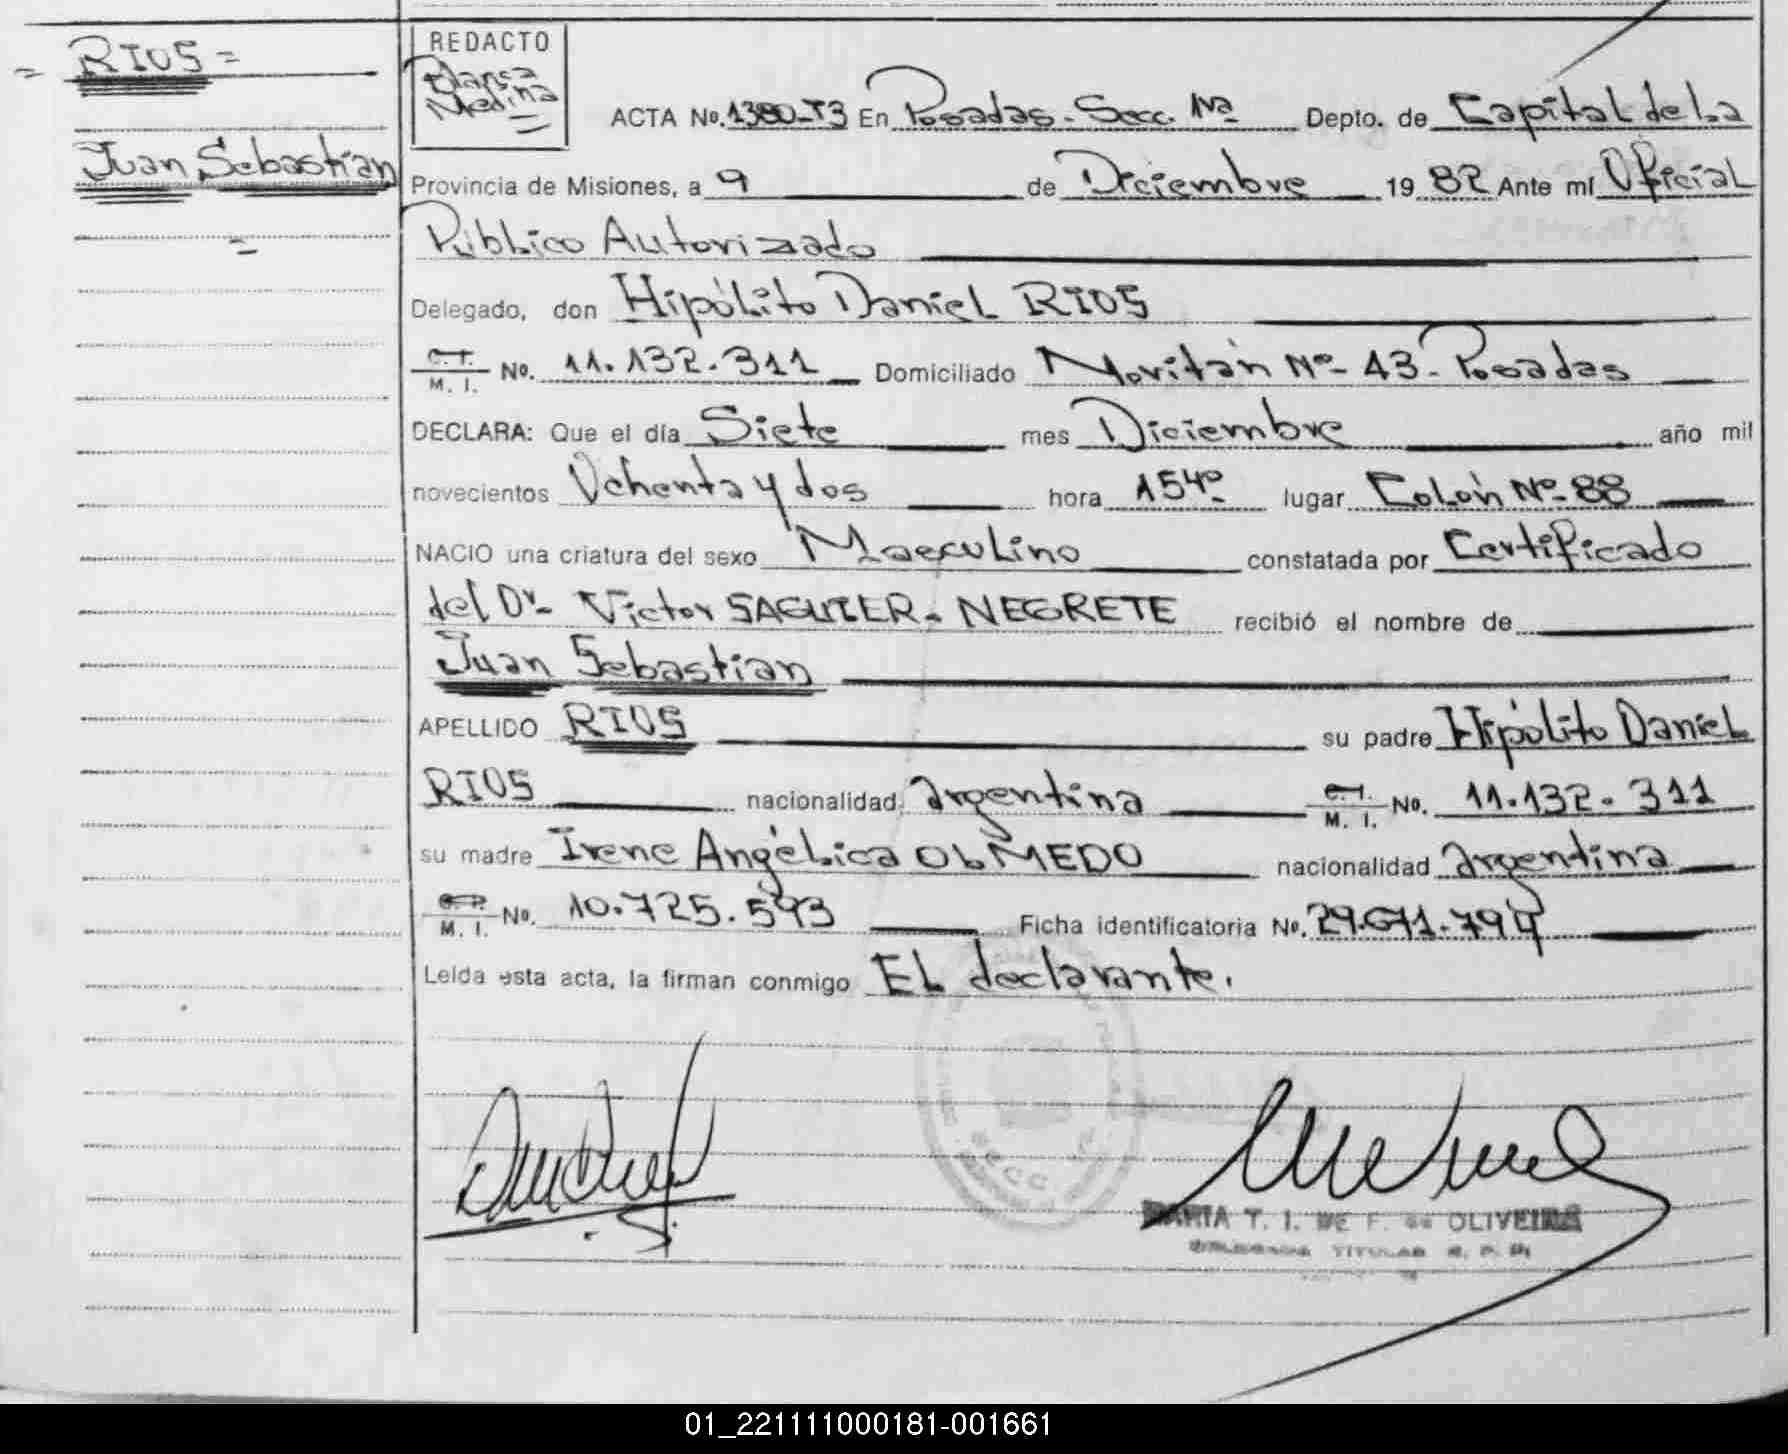 = RIOS =
Juan Sebastian
=
REDACTO
Blanca
Medina
ACTA No. 1380-T3 En Posadas - Secc. 1ra Depto. de Capital de La
Provincia de Misiones, a 9 de Diciembre 1982 Ante mí Oficial
Público Autorizado
Delegado, don Hipólito Daniel RIOS
C. I.
M. I. No. 11.132.311 Domiciliado Moritán Nº 43 - Posadas
DECLARA: Que el día Siete mes Diciembre año mil
novecientos Ochenta y dos hora 1540 lugar Colón Nº 88
NACIO una criatura del sexo Masculino constatada por Certificado
del Dr. Victor SAGUIER - NEGRETE recibió el nombre de
Juan Sebastian
APELLIDO RIOS su padre Hipólito Daniel
RIOS nacionalidad argentina C. I.
M. I. No. 11.132.311
su madre Irene Angélica OLMEDO nacionalidad argentina
M. I. No. 10.725.593 Ficha identificatoria No. 29.671.794
Leída esta acta, la firman conmigo EL declarante.
SECC.
MARIA T. I. DE F. de OLIVEIRA
TITULAR R. P.
01_221111000181-001661